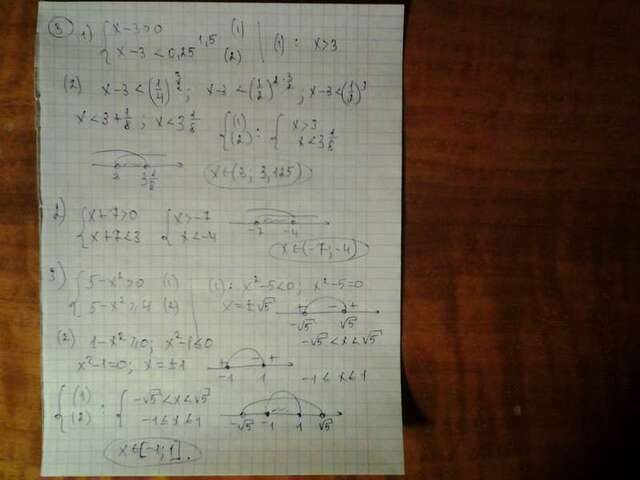 ③ 1) { x-3>0 (1) | (1): x>3
{ x-3 < 0,25^1,5 (2)
(2) x-3 < (1/4)^3/2 ; x-3 < (1/2)^2·3/2 ; x-3 < (1/2)^3
x < 3+1/8 ; x < 3 1/8 { (1) (2) : { x>3 x<3 1/8
3 3 1/8 x∈(3; 3,125)
2) { x+7>0 { x>-7
{ x+7<3 { x<-4 -7 -4
x∈(-7;-4)
3) { 5-x²>0 (1) (1): x²-5<0; x²-5=0
{ 5-x²≥4 (2) x=±√5 + - + -√5 √5
(2) 1-x²≥0; x²-1≤0 -√5<x<√5
x²-1=0; x=±1 + - + -1 1 -1≤x≤1
{ (1) (2) : { -√5<x<√5 -1≤x≤1 -√5 -1 1 √5
x∈[-1;1].